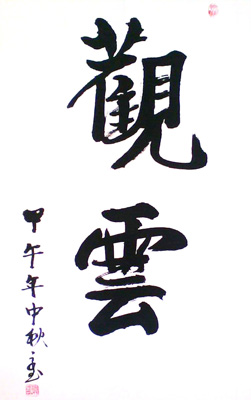 觀雲
甲午年中秋